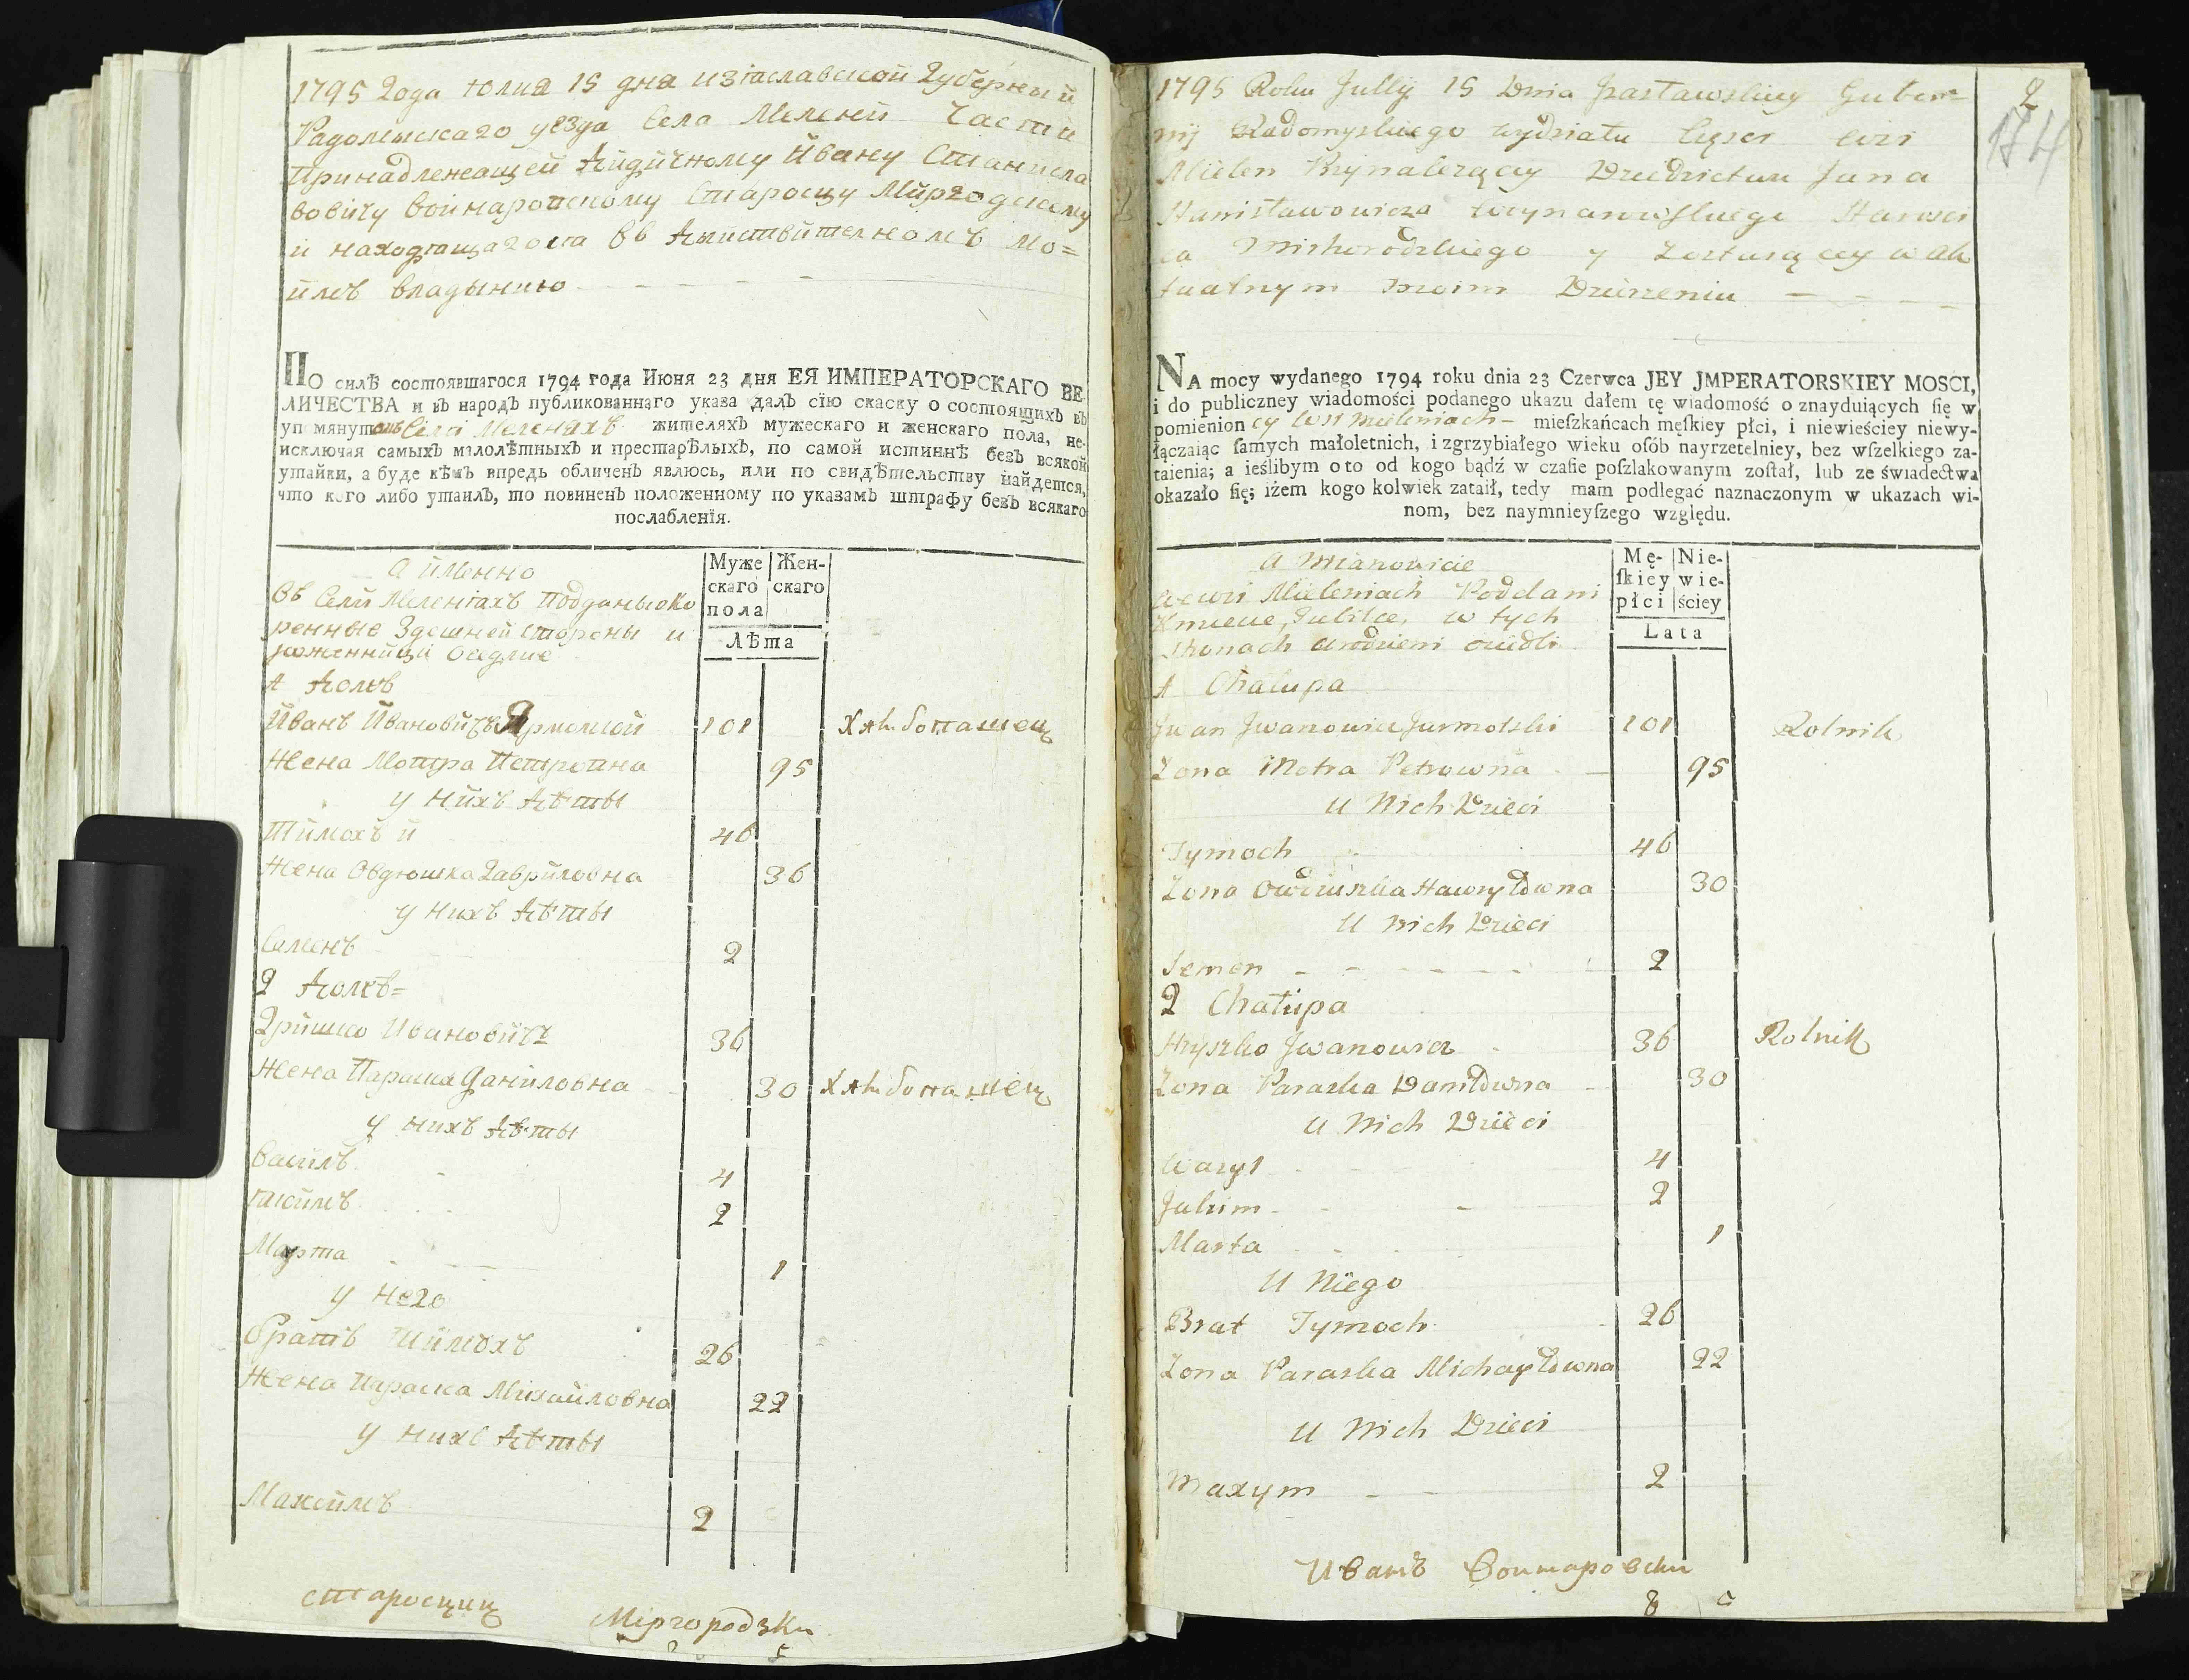 1795 года юлиа 15 дна изіаславской губерный
Радомыскаго уезда Села Мелений Части
Принадлежащей Дидичному Йвану Станисла
вовичу Войнаровскому Старосцу Миргодскому
и находящагося въ Действительномъ мо=
имъ владынию
ПО силѣ состоявшагося 1794 года Июня 23 дня ЕЯ ИМПЕРАТОРСКАГО ВЕ-
ЛИЧЕСТВА и въ народъ публикованнаго указа далъ сїю скаску о состоящихъ въ
упомянутомъ Селѣ Меленяхъ жителяхъ мужескаго и женскаго пола, не-
исключая самыхъ малолѣтныхъ и престарѣлыхъ, по самой истиннѣ безъ всякой
утайки, а буде кѣмъ впредь обличенъ явлюсь, или по свидѣтельству найдется,
что кого либо утаилъ, то повиненъ положенному по указамъ штрафу безъ всякаго
послабленїя.
а именно
Въ Сели Меленіахъ Подданые Ко
ренные Здешней Стороны и
рожденныци Оседлие
Муже Жен-
скаго скаго
пола
Лѣта
1 Домъ
Йванъ Йвановичъ Ярмолской 101 Хлѣбопашец
Жена Мотра Петровна 95
у нихъ Дѣты
Тимохъ й 46
Жена Овдюшка Гаврйловна 36
у нихъ Дѣты
Семенъ 2
2 Домъ=
Гришко Ивановичъ 36
Жена Параска Данйловна 30 Хлѣбопашец
у нихъ Дѣты
Василъ 4
Якимъ 2
Марта 1
у него
братъ Тимохъ 26
Жена Параска Михайловна 22
у нихъ Дѣты
Максимъ 2
старосциц Міргородзки
1795 Roku Jullÿ 15 Dnia Jzasławskiey Guber=
nij Radomyskiego wydziału Części wsi
Mielen Przynależący Dziedzictwu Jana
Stanisławowicza Woynarowskiego Starości
ca Mirhorodzkiego y Zostaiącey w Ak
tualnym moim Dzierzeniu
2
174
NA mocy wydanego 1794 roku dnia 23 Czerwca JEY JMPERATORSKIEY MOSCI,
i do publiczney wiadomości podanego ukazu dałem tę wiadomość o znayduiących ſię w
pomienioney wsi Mieleniach mieſzkańcach męſkiey płci, i niewieściey niewy-
łączaiąc ſamych małoletnich, i zgrzybiałego wieku oſób nayrzetelniey, bez wſzelkiego za-
taienia; a ieślibym o to od kogo bądź w czaſie poſzlakowanym zoſtał, lub ze świadectwa
okazało ſię; iżem kogo kolwiek zataił, tedy mam podlegać naznaczonym w ukazach wi-
nom, bez naymnieyſzego względu.
a mianowicie
we wsi Mieleniach Poddani
Kmiecie, w tych
Stronach urodzeni osiedli
Mę- Nie-
ſkiey wie-
płci ściey
Lata
1 Chałupa
Jwan Jwanowicz Jarmolski 101 Rolnik
Zona Motra Petrowna 95
U Nich Dzieci
Tymoch 46
Zona Owdiuszka Hawryłowna 30
U Nich Dzieci
Semen 2
2 Chałupa
Hryszko Jwanowicz 36 Rolnik
Zona Paraska Daniłowna 30
U Nich Dzieci
Wasyl 4
Jakim 2
Marta 1
U Niego
Brat Tymoch 26
Zona Paraska Michayłowna 22
U Nich Dzieci
Maxym 2
Иванъ Воинаровски
8 5